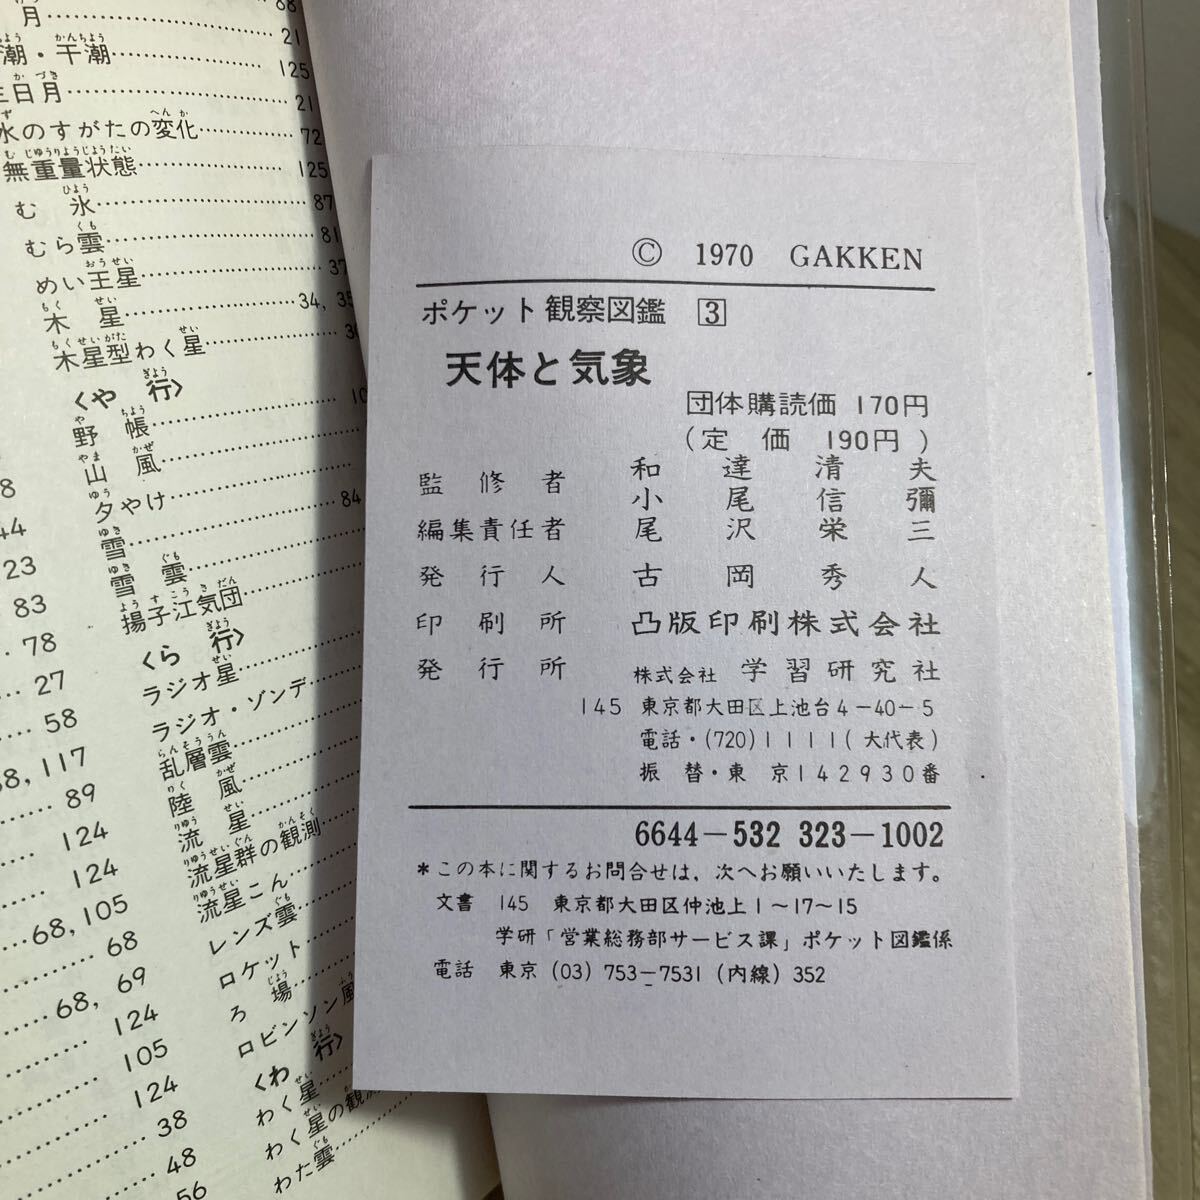 月 88
潮・干潮 21
125
日月
21
水のすがたの変化 72
無重量状態 125
む氷 87
むら雲 81
めい王星 37
木星 34, 35
木星型わく星
〈や行〉
野帳
山風
夕やけ
84
雪
雪雲
揚子江気団
〈ら行〉
ラジオ星
ラジオ・ゾンデ
乱層雲
陸風
流星
流星群の観測
流星こん
レンズ雲
ロケット
ろ場
ロビンソン風
〈わ行〉
わく星
わく星の観測
わた雲
8
44
23
83
78
27
58
117
89
124
124
68, 105
68
68, 69
124
105
124
38
48
56
© 1970 GAKKEN
ポケット観察図鑑 3
天体と気象
団体購読価 170円
(定価 190円)
監修者 和達清夫
小尾信彌
編集責任者 尾沢栄三
発行人 古岡秀人
印刷所 凸版印刷株式会社
発行所 株式会社 学習研究社
145 東京都大田区上池台4-40-5
電話・(720)1111(大代表)
振替・東京142930番
6644-532 323-1002
*この本に関するお問合せは、次へお願いいたします。
文書 145 東京都大田区仲池上1~17~15
学研「営業総務部サービス課」ポケット図鑑係
電話 東京(03)753-7531(内線)352